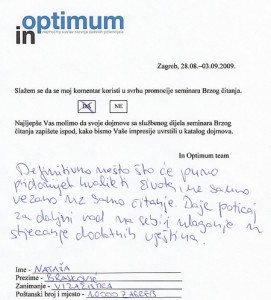 in optimum
Zagreb, 28.08.-03.09.2009.
Slažem se da se moj komentar koristi u svrhu promocije seminara Brzog čitanja.
DA NE
Najljepše Vas molimo da svoje dojmove sa službenog dijela seminara Brzog
čitanja zapišete ispod, kako bismo Vaše impresije uvrstili u katalog dojmova.
In Optimum team
Definitivno nešto što će puno
pidonijet kvaliteti života, ne samo
vezano uz samo čitanje. Daje poticaj
za daljni rad na sebi, ulaganje u
stjecanje dodatnih vještina.
Ime - NATAŠA
Prezime -
Zanimanje - VIZAŽISTICA
Poštanski broj i mjesto - 10000 ZAGREB